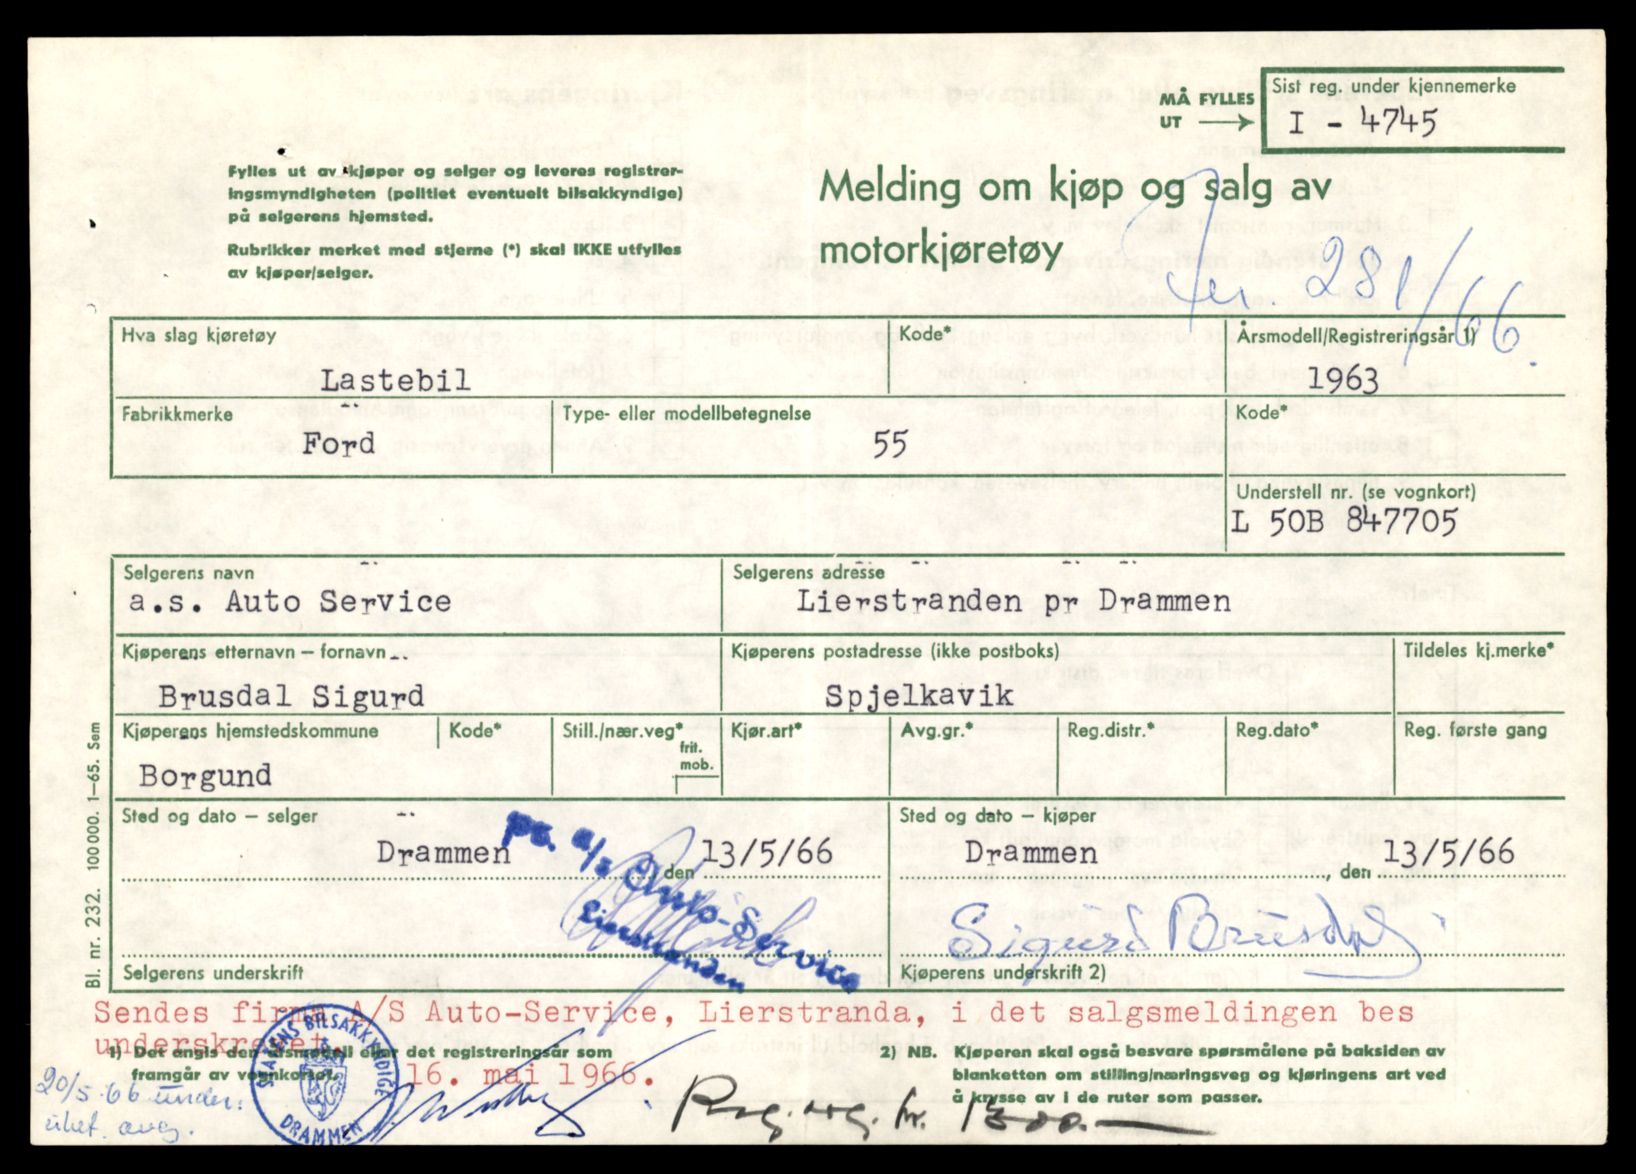 MÅ FYLLES
UT
Sist reg. under kjennemerke
I - 4745
Fylles ut av kjøper og selger og leveres registrer-
ingsmyndigheten (politiet eventuelt bilsakkyndige)
på selgerens hjemsted.
Rubrikker merket med stjerne (*) skal IKKE utfylles
av kjøper/selger.
Melding om kjøp og salg av
motorkjøretøy
281/66.
Hva slag kjøretøy
Lastebil
Kode*
Årsmodell/Registreringsår 1)
1963
Fabrikkmerke
Ford
Type- eller modellbetegnelse
55
Kode*
Understell nr. (se vognkort)
L 50B 847705
Selgerens navn
a.s. Auto Service
Selgerens adresse
Lierstranden pr Drammen
Kjøperens etternavn – fornavn
Brusdal Sigurd
Kjøperens postadresse (ikke postboks)
Spjelkavik
Tildeles kj.merke*
Kjøperens hjemstedskommune
Borgund
Kode*
Still./nær.veg*
frit.
mob.
Kjør.art*
Avg.gr.*
Reg.distr.*
Reg.dato*
Reg. første gang
Sted og dato – selger
Drammen den 13/5/66
pg. a/s Auto-Service
Lierstranden
Selgerens underskrift
Sted og dato – kjøper
Drammen, den 13/5/66
Sigurd Brusdal
Kjøperens underskrift 2)
Bl. nr. 232. 100000. 1–65. Sem
Sendes firma A/S Auto-Service, Lierstranda, i det salgsmeldingen bes
underskrevet.
16. mai 1966.
1) Det angis den årsmodell eller det registreringsår som
framgår av vognkortet.
2) NB. Kjøperen skal også besvare spørsmålene på baksiden av
blanketten om stilling/næringsveg og kjøringens art ved
å krysse av i de ruter som passer.
STATENS BILSAKKYNDIGE
DRAMMEN
20/5-66 under.
Reg. avg. kr. 1300.—